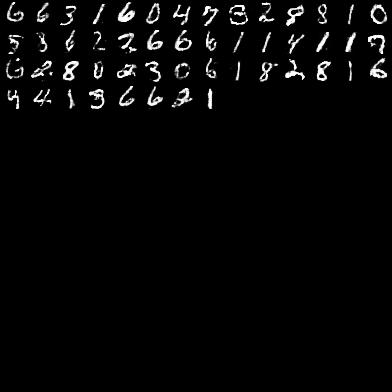 6 6 3 1 6 0 4 7 3 2 8 8 1 0
5 3 6 2 2 6 6 6 1 1 4 1 1 7
6 2 8 0 2 3 0 6 1 8 2 8 1 6
4 4 1 3 6 6 2 1